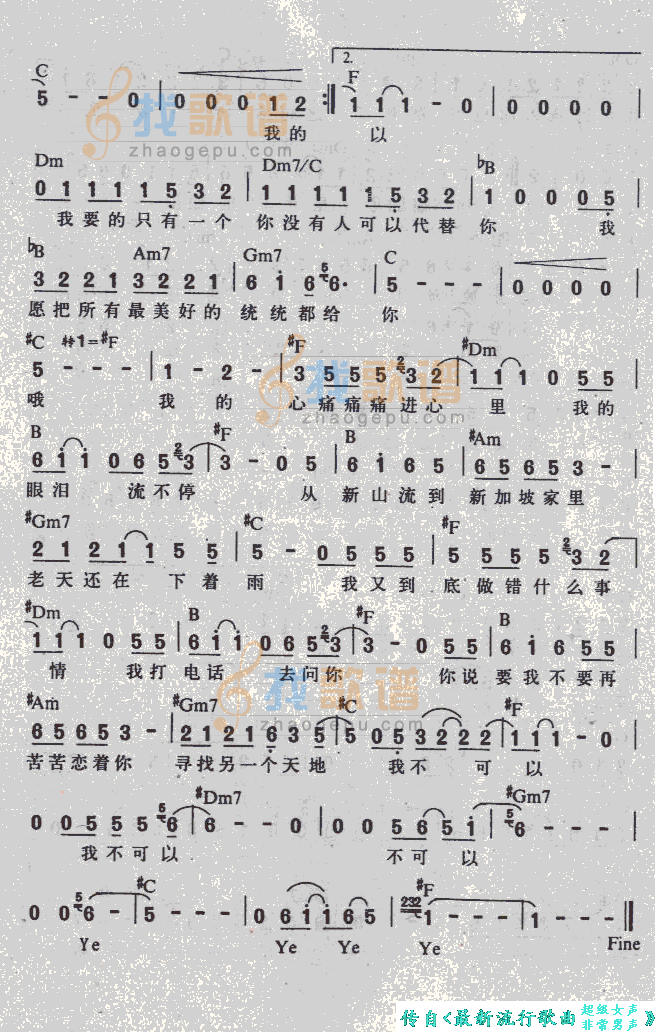 2.
C F
5 - - 0 | 0 0 0 1 2 :‖ 1 1 1 - 0 | 0 0 0 0 |
我的 以
找歌谱
zhaogepu.com
Dm Dm7/C ♭B
0 1 1 1 1 5 3 2 | 1 1 1 1 1 5 3 2 | 1 0 0 0 5 |
我要的只有一个 你没有人可以代替 你 我
♭B Am7 Gm7 C
3 2 2 1 3 2 2 1 | 6 i 6 5 6· | 5 - - - | 0 0 0 0 |
愿把所有最美好的 统统都给 你
♯C 转1=♯F ♯F ♯Dm
5 - - - | 1 - 2 - | 3 5 5 5 5 2 3 2 | 1 1 1 0 5 5 |
哦 我 的 心痛痛痛进心 里 我的
找歌谱
zhaogepu.com
B ♯F B ♯Am
6 i i 0 6 5 2 3 | 3 - 0 5 | 6 i 6 5 | 6 5 6 5 3 - |
眼泪 流不停 从 新山流到 新加坡家里
♯Gm7 ♯C ♯F
2 1 2 1 1 5 5 | 5 - 0 5 5 5 | 5 5 5 5 2 3 2 |
老天还在 下着 雨 我又到 底做错什么事
♯Dm B ♯F B
1 1 1 0 5 5 | 6 i i 0 6 5 2 3 | 3 - 0 5 5 | 6 i 6 5 5 |
情 我打 电话 去问你 你说 要我不要再
找歌谱
zhaogepu.com
♯Am ♯Gm7 ♯C ♯F
6 5 6 5 3 - | 2 1 2 1 6 3 5 | 5 0 5 3 2 2 2 | 1 1 1 - 0 |
苦苦恋着你 寻找另一个天地 我不 可 以
♯Dm7 ♯Gm7
0 0 5 5 5 6 6 | 6 - - 0 | 0 0 5 6 5 i | 6 6 - - - |
我不可以 不可 以
♯C ♯F
0 0 5 6 - | 5 - - - | 0 6 i i 6 5 | 232 1 - - - | 1 - - - ‖
Ye Ye Ye Ye Fine
传自<最新流行歌曲 超级女声 非常男声 》